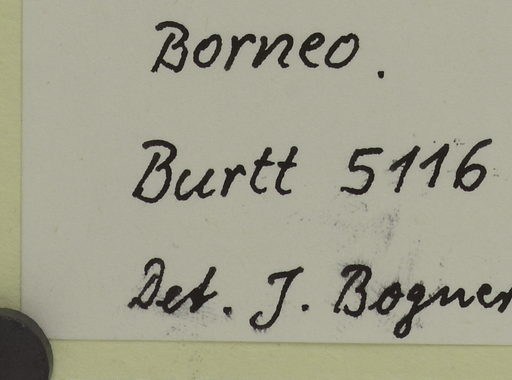 Borneo.
Burtt 5116
Det. J. Bogner